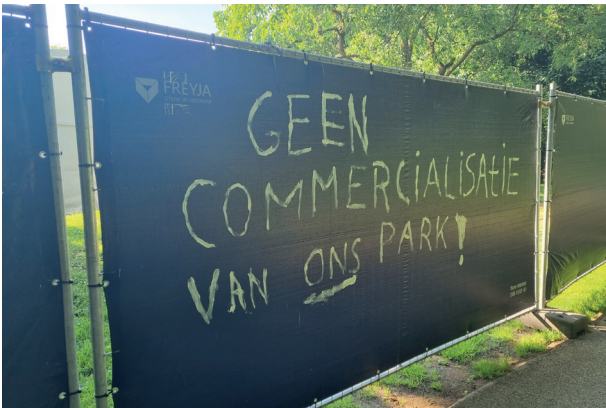 FREYJA
GEEN
COMMERCiALiSAtiE
VAN ONS PARK!